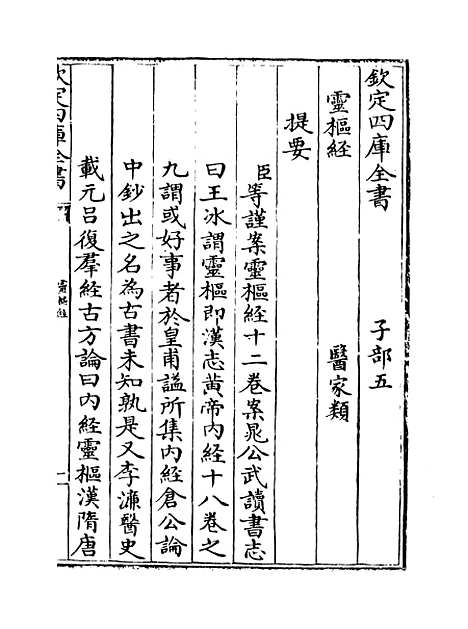 欽定四庫全書　子部五
靈樞經　醫家類
提要
臣等謹案靈樞經十二卷案晁公武讀書志
曰王冰謂靈樞即漢志黃帝內經十八卷之
九謂或好事者於皇甫謐所集內經倉公論
中鈔出之名為古書未知孰是又李濂醫史
載元呂復羣經古方論曰內經靈樞漢隋唐
欽定四庫全書　靈樞經　一